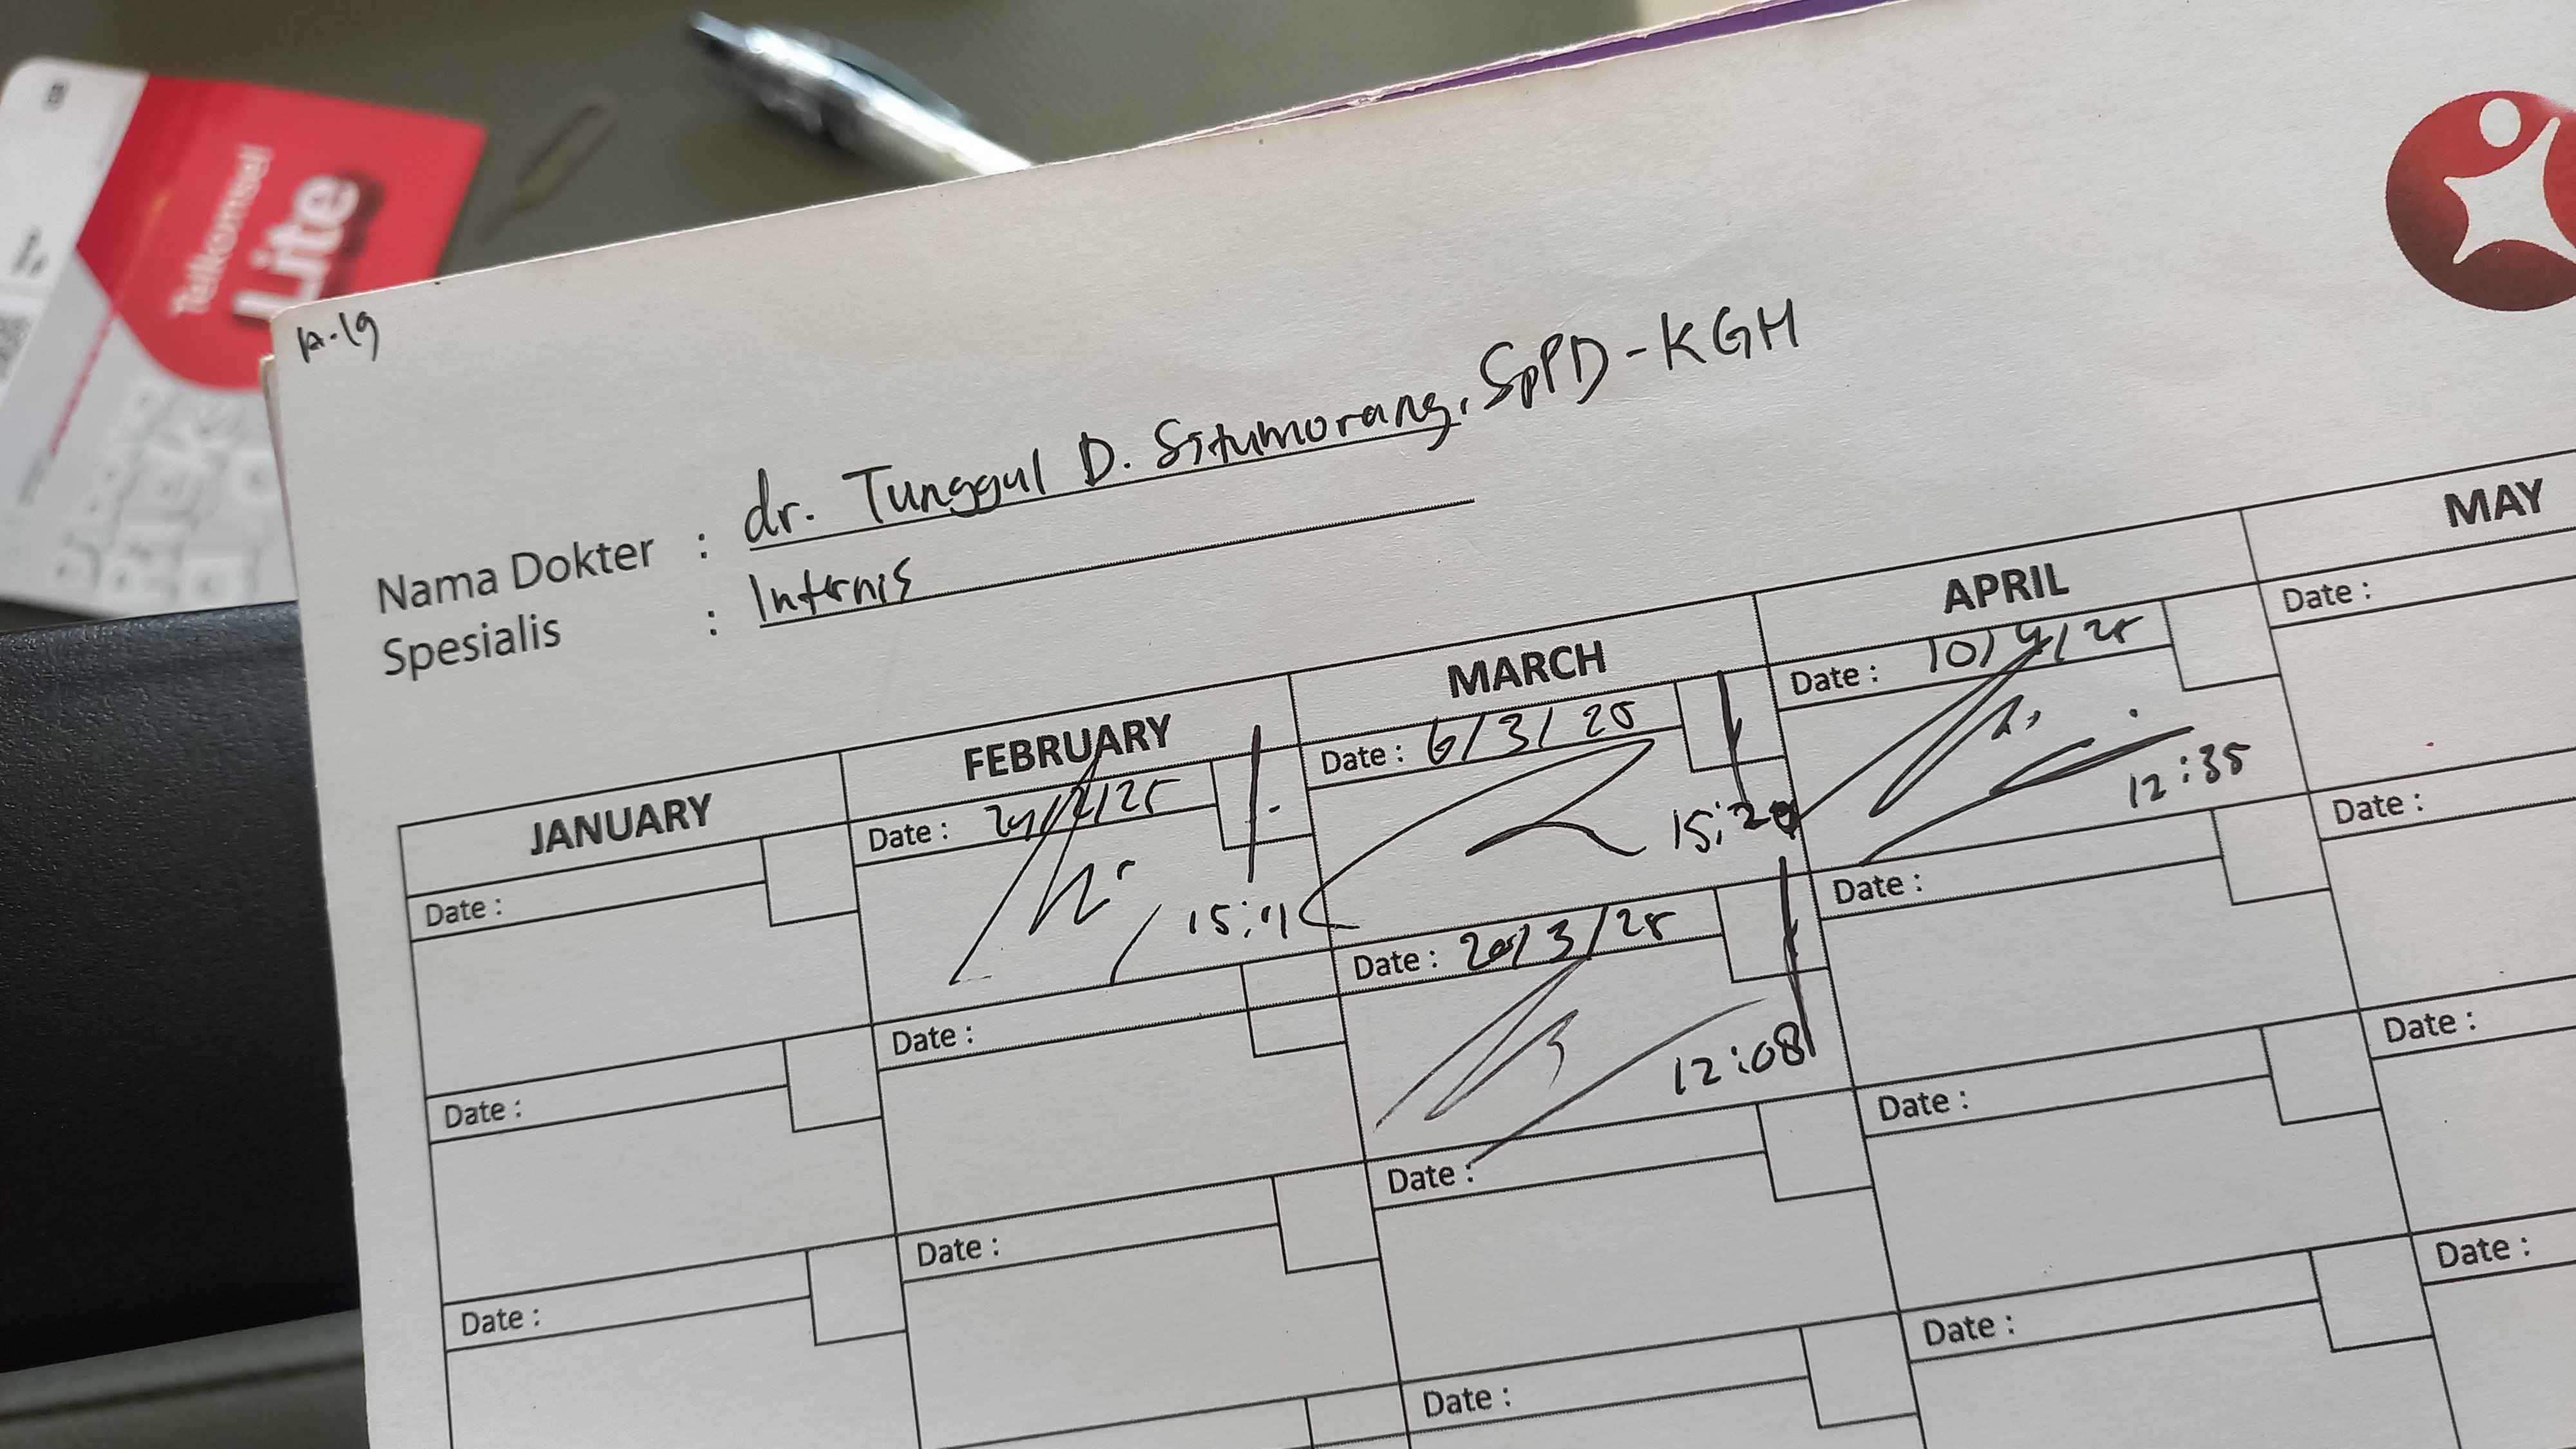 Telkomsel
Lite
A-19
Nama Dokter : dr. Tunggul D. Situmorang, SpPD-KGH
Spesialis : Internis
JANUARY FEBRUARY MARCH APRIL MAY
Date : Date : Date : 6/3/25 Date : 10/4/25 Date :
15:20 12:35
Date : Date : Date : 20/3/25 Date : Date :
12:08
Date : Date : Date : Date : Date :
Date : Date : Date :